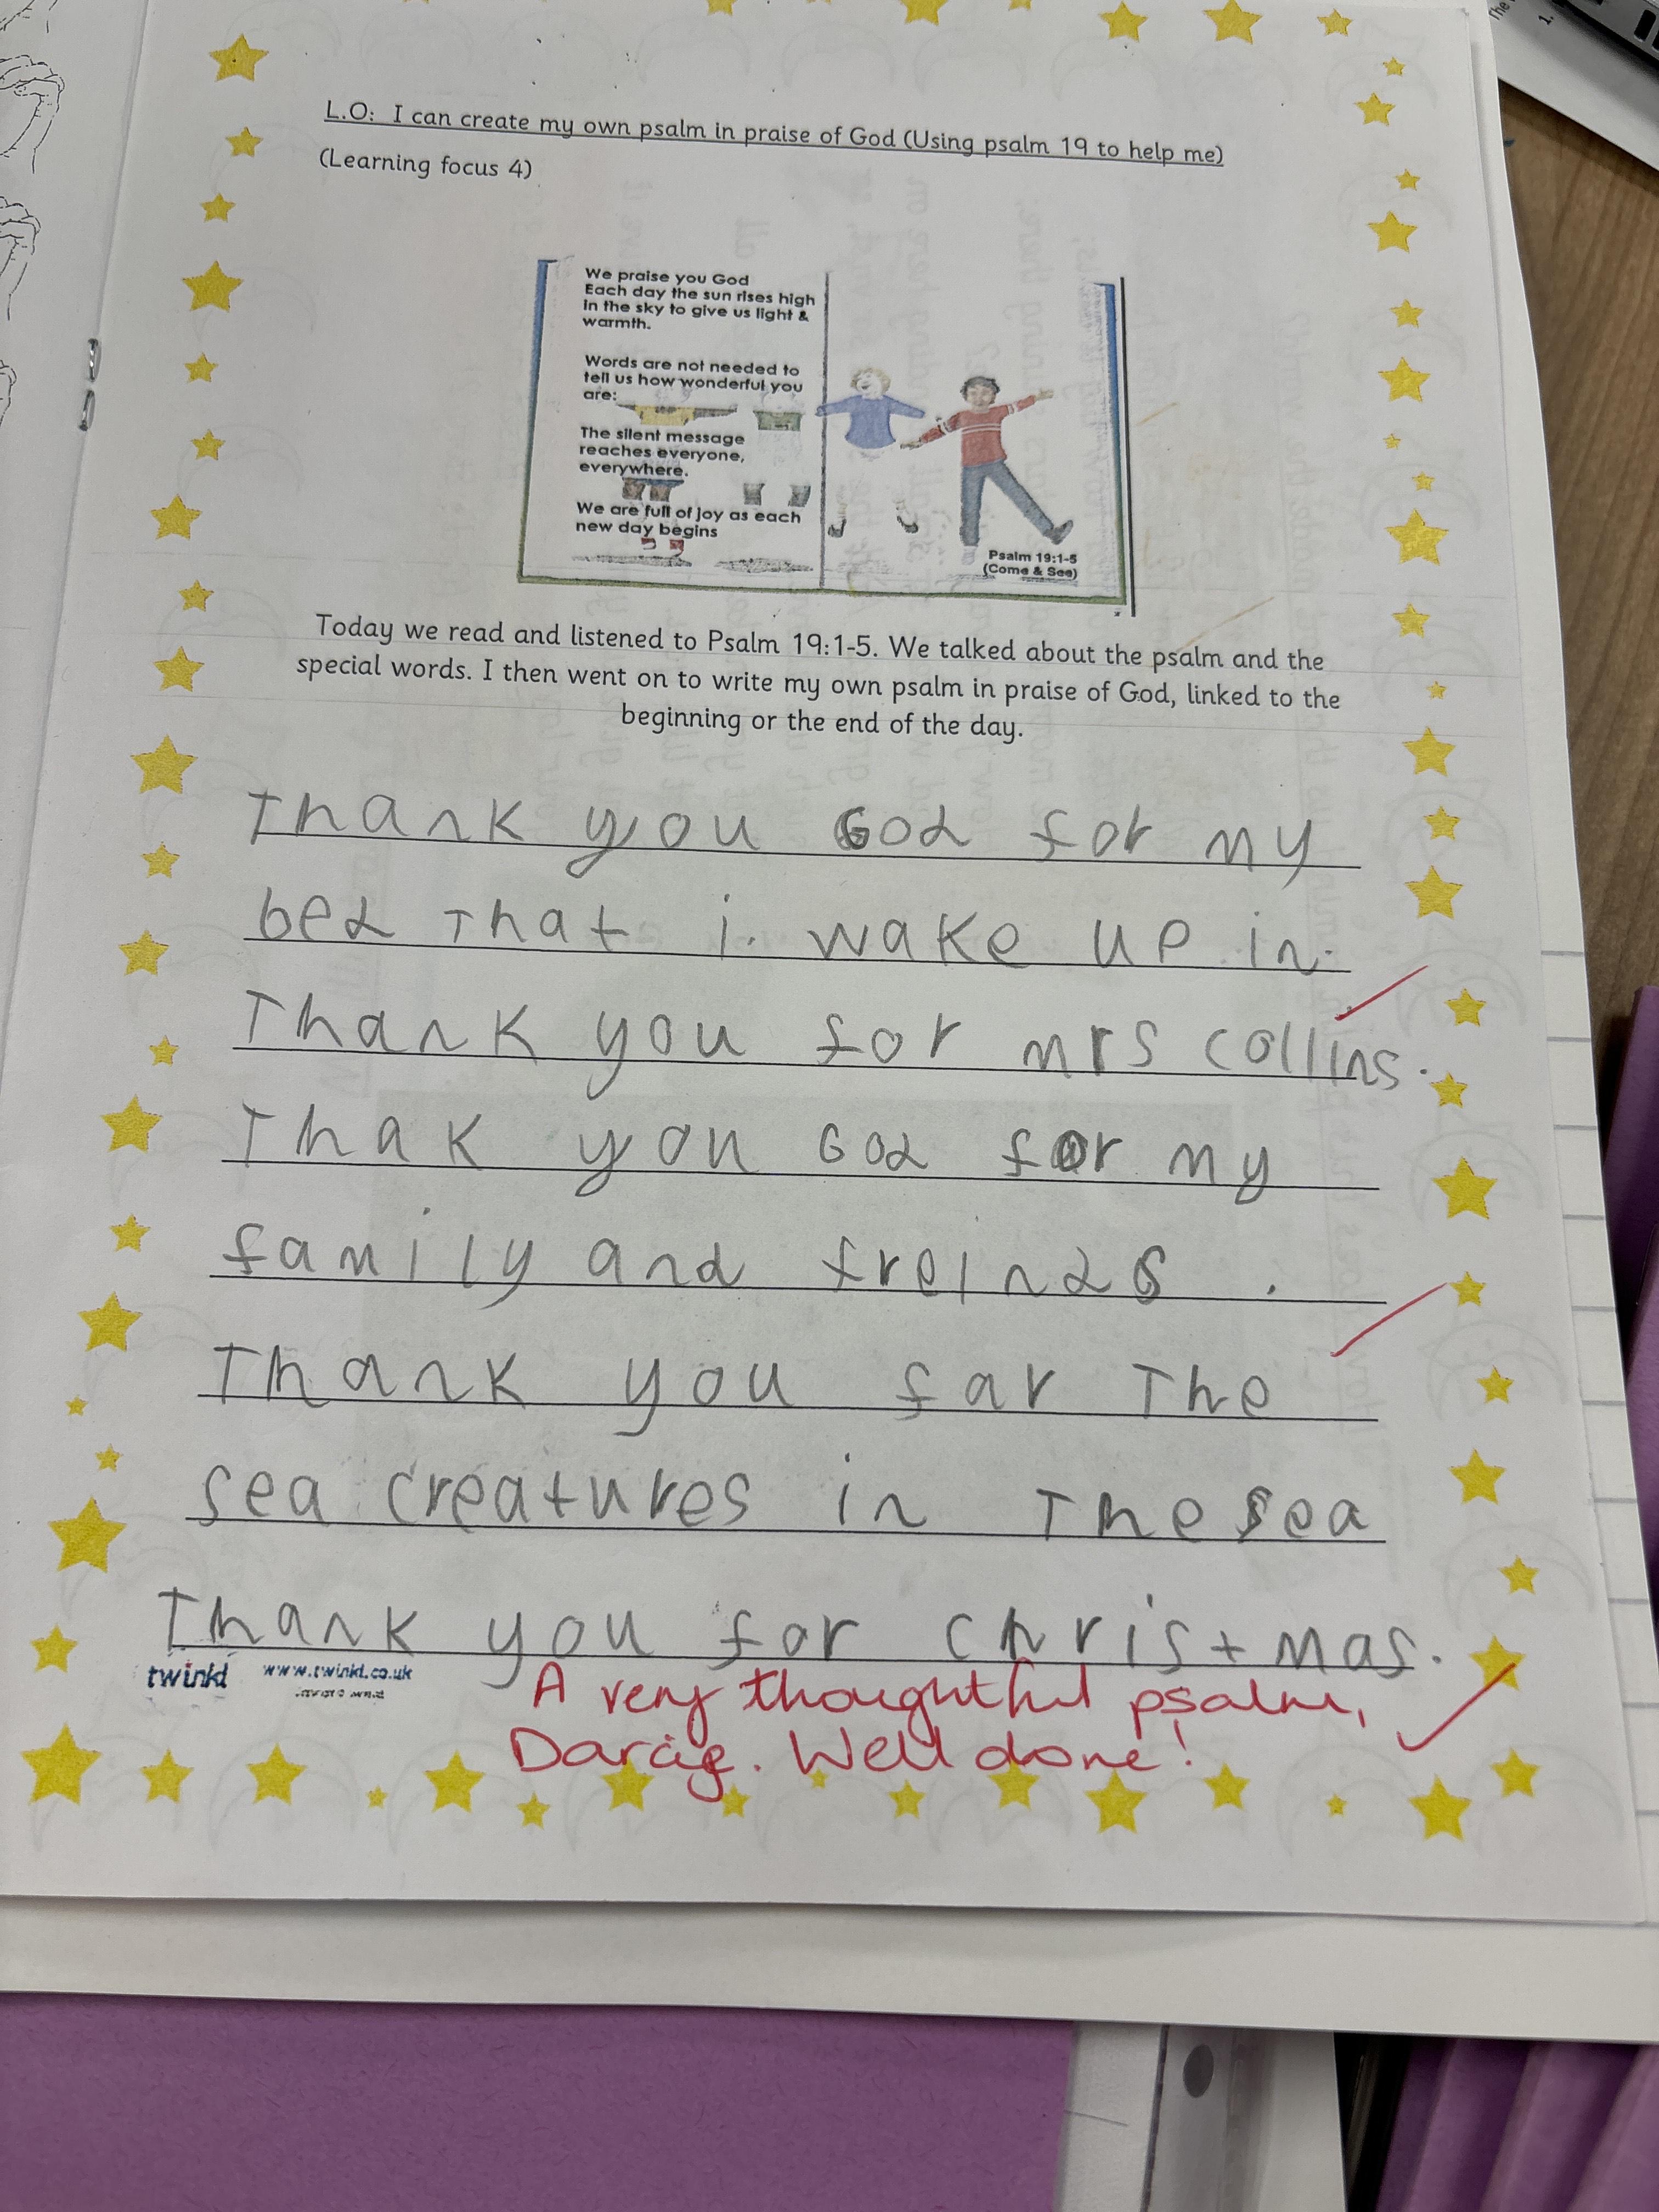 L.O: I can create my own psalm in praise of God (Using psalm 19 to help me)
(Learning focus 4)
We praise you God
Each day the sun rises high
in the sky to give us light &
warmth.
Words are not needed to
tell us how wonderful you
are:
The silent message
reaches everyone,
everywhere.
We are full of joy as each
new day begins
Psalm 19:1-5
(Come & See)
Today we read and listened to Psalm 19:1-5. We talked about the psalm and the
special words. I then went on to write my own psalm in praise of God, linked to the
beginning or the end of the day.
Thank you God for my
bed That i. wake up in.
Thank you for mrs collins.
Thak you God for my
family and freinds .
Thank you far The
sea creatures in The sea
Thank you for christmas.
twinkl www.twinkl.co.uk
A very thoughtful psalm,
Darcie. Well done!
The
1.